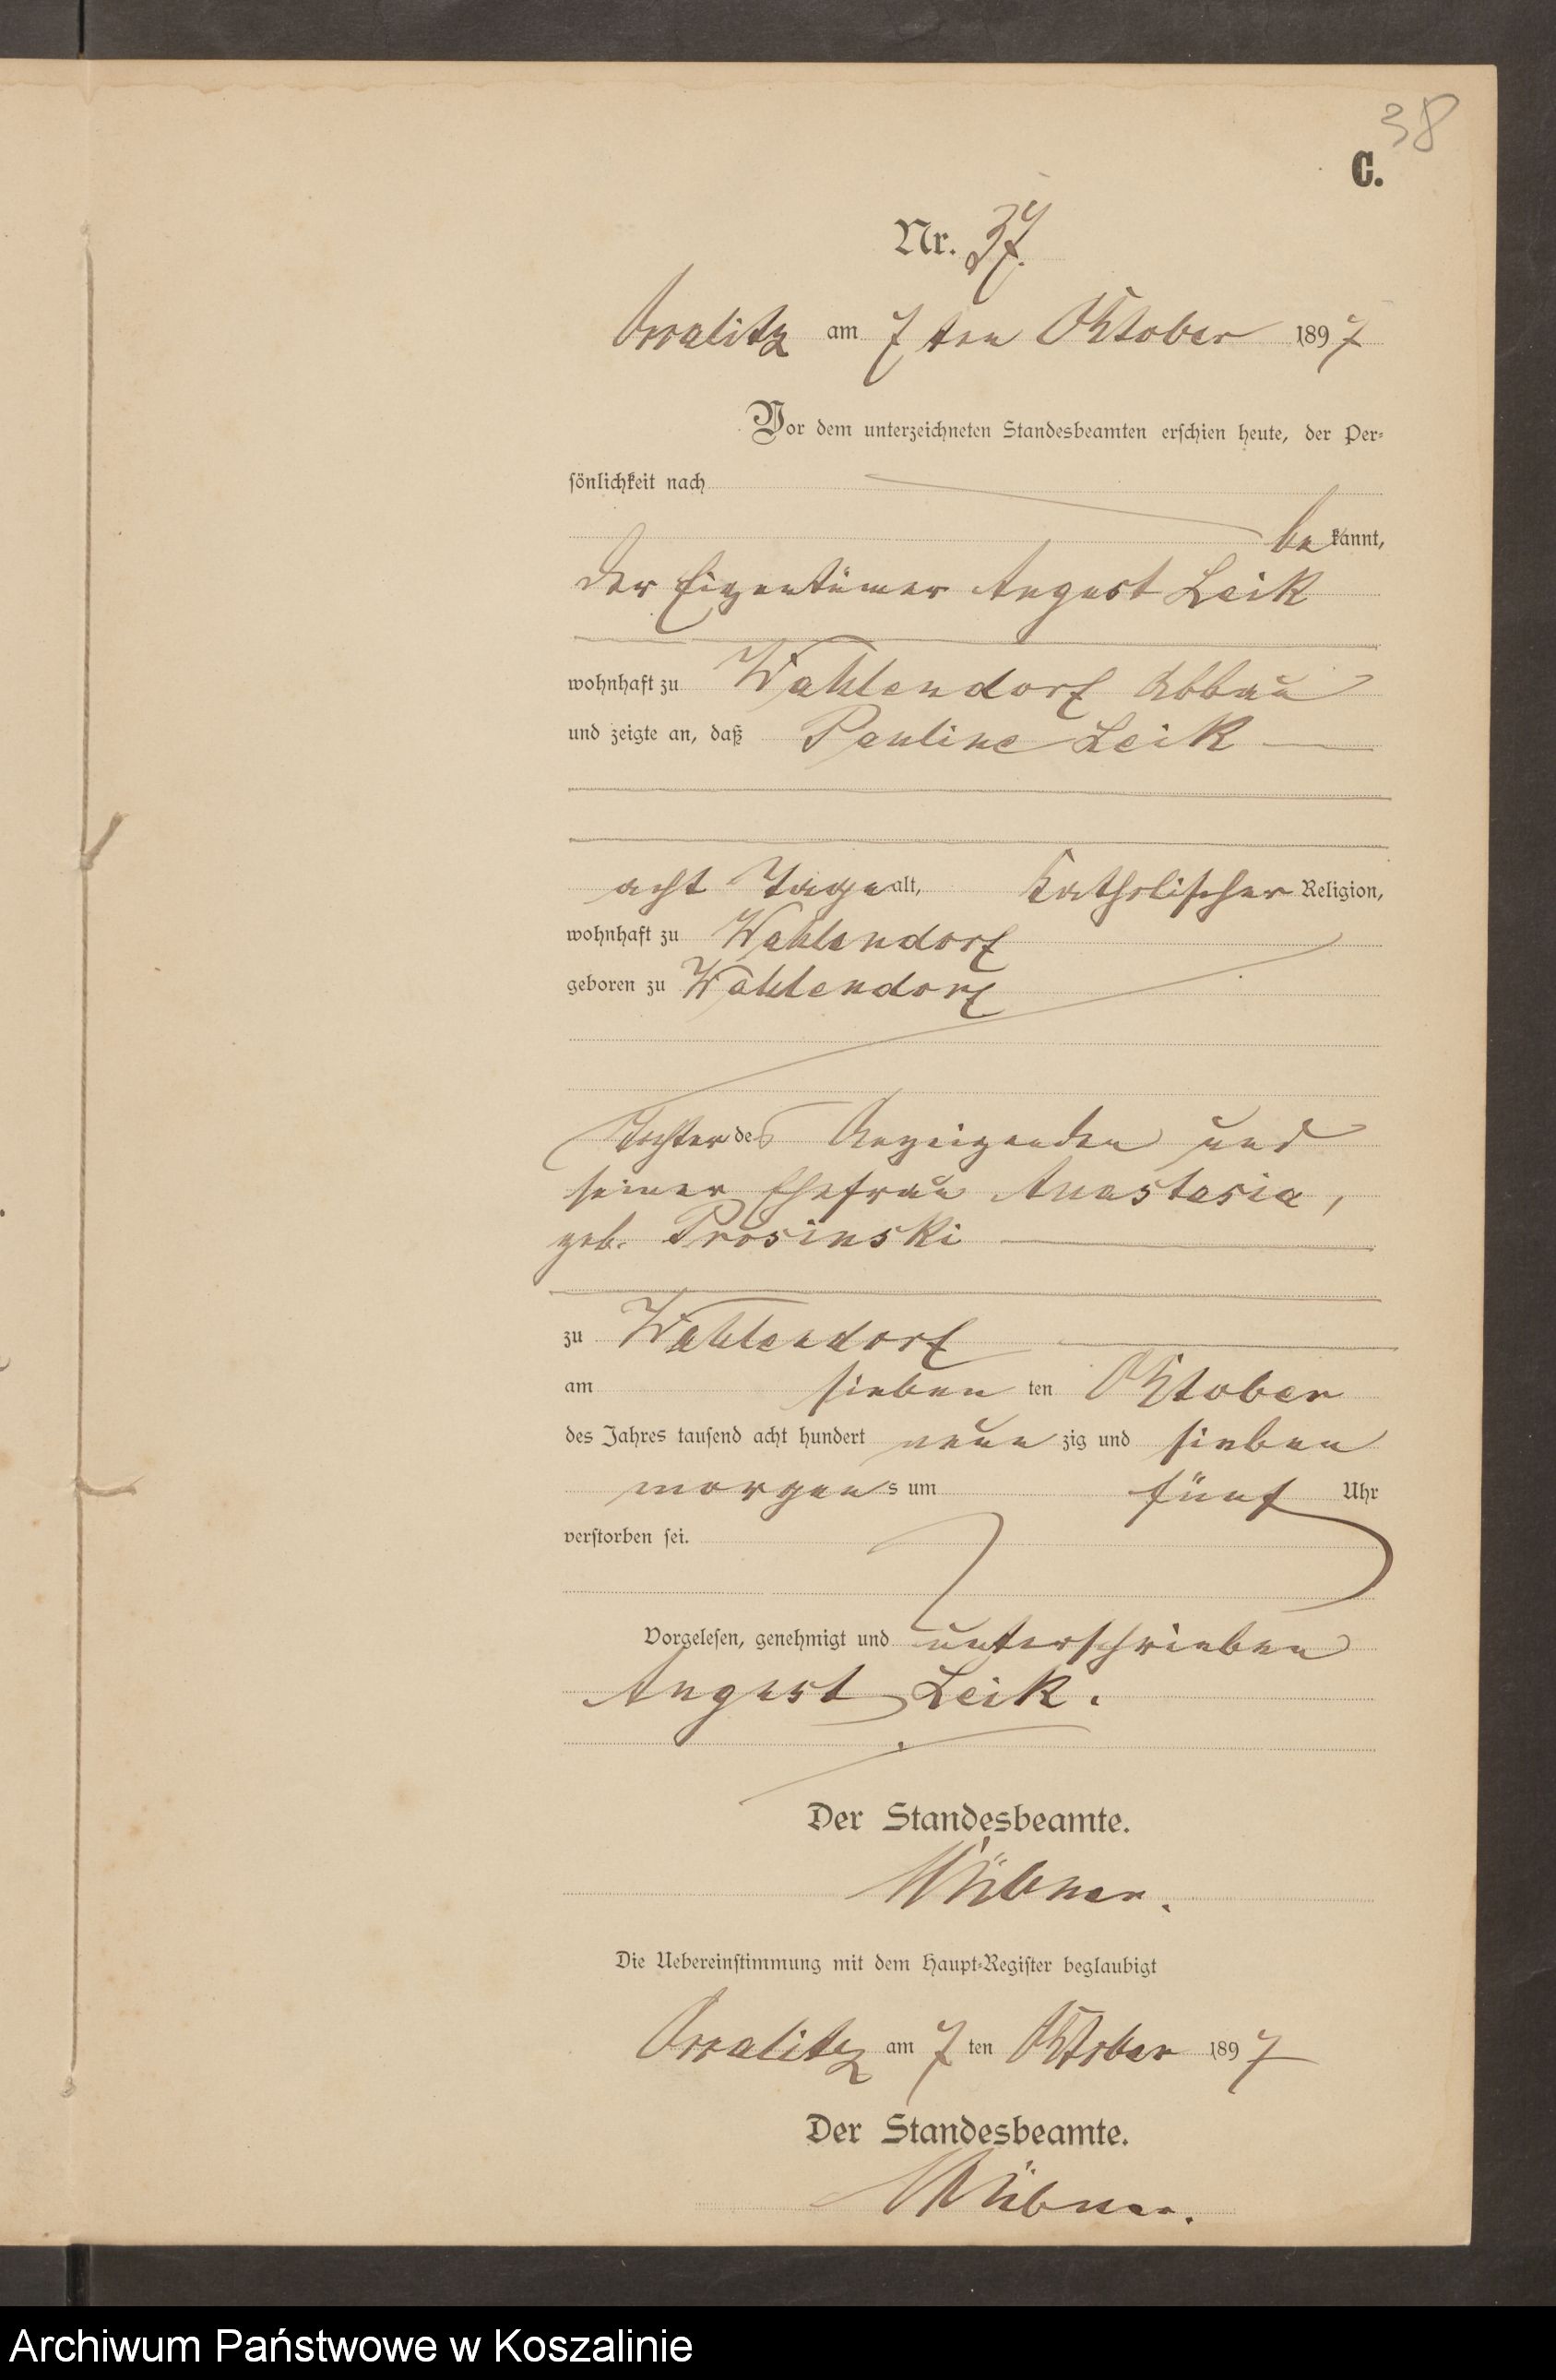 38
C.
Nr. 37.
Ossalitz am 7 ten Oktober 1897
Vor dem unterzeichneten Standesbeamten erschien heute, der Per-
sönlichkeit nach
bekannt,
der Eigentümer August Leik
wohnhaft zu Wahlendorf Abbau
und zeigte an, daß Pauline Leik
acht Tage alt, katholischer Religion,
wohnhaft zu Wahlendorf
geboren zu Wahlendorf
Tochter des Anzeigenden und
seiner Ehefrau Anastasia,
geb. Prosinski
zu Wahlendorf
am sieben ten Oktober
des Jahres tausend acht hundert neun zig und sieben
morgens um fünf Uhr
verstorben sei.
Vorgelesen, genehmigt und unterschrieben
August Leik.
Der Standesbeamte.
Die Uebereinstimmung mit dem Haupt-Register beglaubigt
Ossalitz am 7 ten Oktober 1897
Der Standesbeamte.
Archiwum Państwowe w Koszalinie